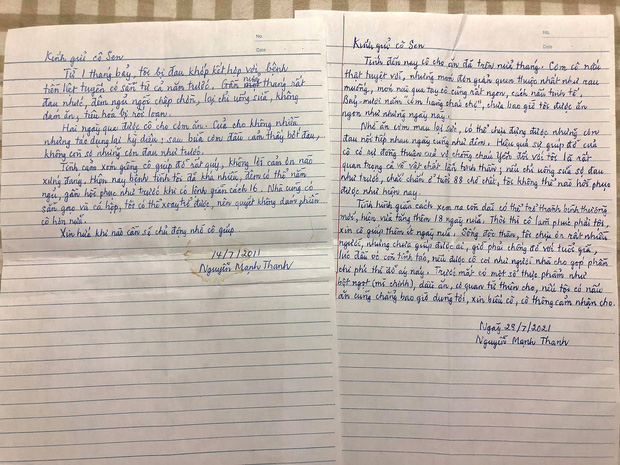 No.
Date
Kính gửi cô Sen
Từ 1 tháng bảy, tôi bị đau khớp kết hợp với bệnh
tiền liệt tuyến có sẵn từ cả năm trước. Gần nửa tháng rất
đau nhức, đêm ngủ ngồi chập chờn, lại chỉ uống sữa, không
dám ăn, tiêu hoá bị rối loạn.
Hai ngày qua được cô cho cơm ăn. Quả cho không nhiều
nhưng tác dụng lại kỳ diệu: sau bữa cơm đầu cảm thấy bớt đau,
không còn sợ những cơn đau như trước.
Tình cảm xóm giềng cô giúp đỡ rất quý, không lời cảm ơn nào
xứng đáng. Hiện nay bệnh tình tôi đã khá nhiều, đêm có thể nằm
ngủ, gần hồi phục như trước khi có lệnh giãn cách 16. Nhà cũng có
sẵn gạo và cá hộp, tôi có thể xoay trở được, nên quyết không dám phiền
cô hơn nữa.
Xin hứa khi nào cần sẽ chủ động nhờ cô giúp
14/7/2011
Nguyễn Mạnh Thanh
No.
Date
Kính gửi cô Sen
Tính đến nay cô cho ăn đã trên nửa tháng. Cơm cô nấu
thật tuyệt vời, những món đơn giản quen thuộc nhất như rau
muống, món nào qua tay cô cũng rất ngon, cách nấu tinh tế.
Bảy mươi năm cơm hàng cháo chợ", chưa bao giờ tôi được ăn
ngon như những ngày này.
Nhờ ăn cơm mau lại sức, có thể chịu đựng được những cơn
đau nối tiếp nhau ngày cũng như đêm. Hiệu quả sự giúp đỡ của
cô có sự đồng thuận của vợ chồng cháu Yến đối với tôi là rất
quan trọng cả về vật chất lẫn tinh thần; nếu chỉ uống sữa sợ đau
như trước, chắc chắn ở tuổi 88 chờ chết, tôi không thể nào hồi phục
được như hiện nay.
Tình hình giãn cách xem ra còn dài có thể trở thành bình thường
mới, hiện vừa tăng thêm 18 ngày nữa. Thôi thì cô làm phúc phải tội,
xin cô giúp thêm ít ngày nữa. Sống độc thân, tôi chịu ơn rất nhiều
người, nhưng chưa giúp được ai, giờ phải chống đỡ với tuổi già
lúc đầu vô còn tỉnh táo, nếu được cô coi như người nhà cho góp phần
chi phí thì đỡ áy náy. Trước mắt có một số thực phẩm như
bột ngọt (mì chính), dầu ăn, cơ quan từ thiện cho, nếu tôi có nấu
ăn cũng chẳng bao giờ dùng tới, xin biếu cô, cô thông cảm nhận cho.
Ngày 28/7/2021
Nguyễn Mạnh Thanh